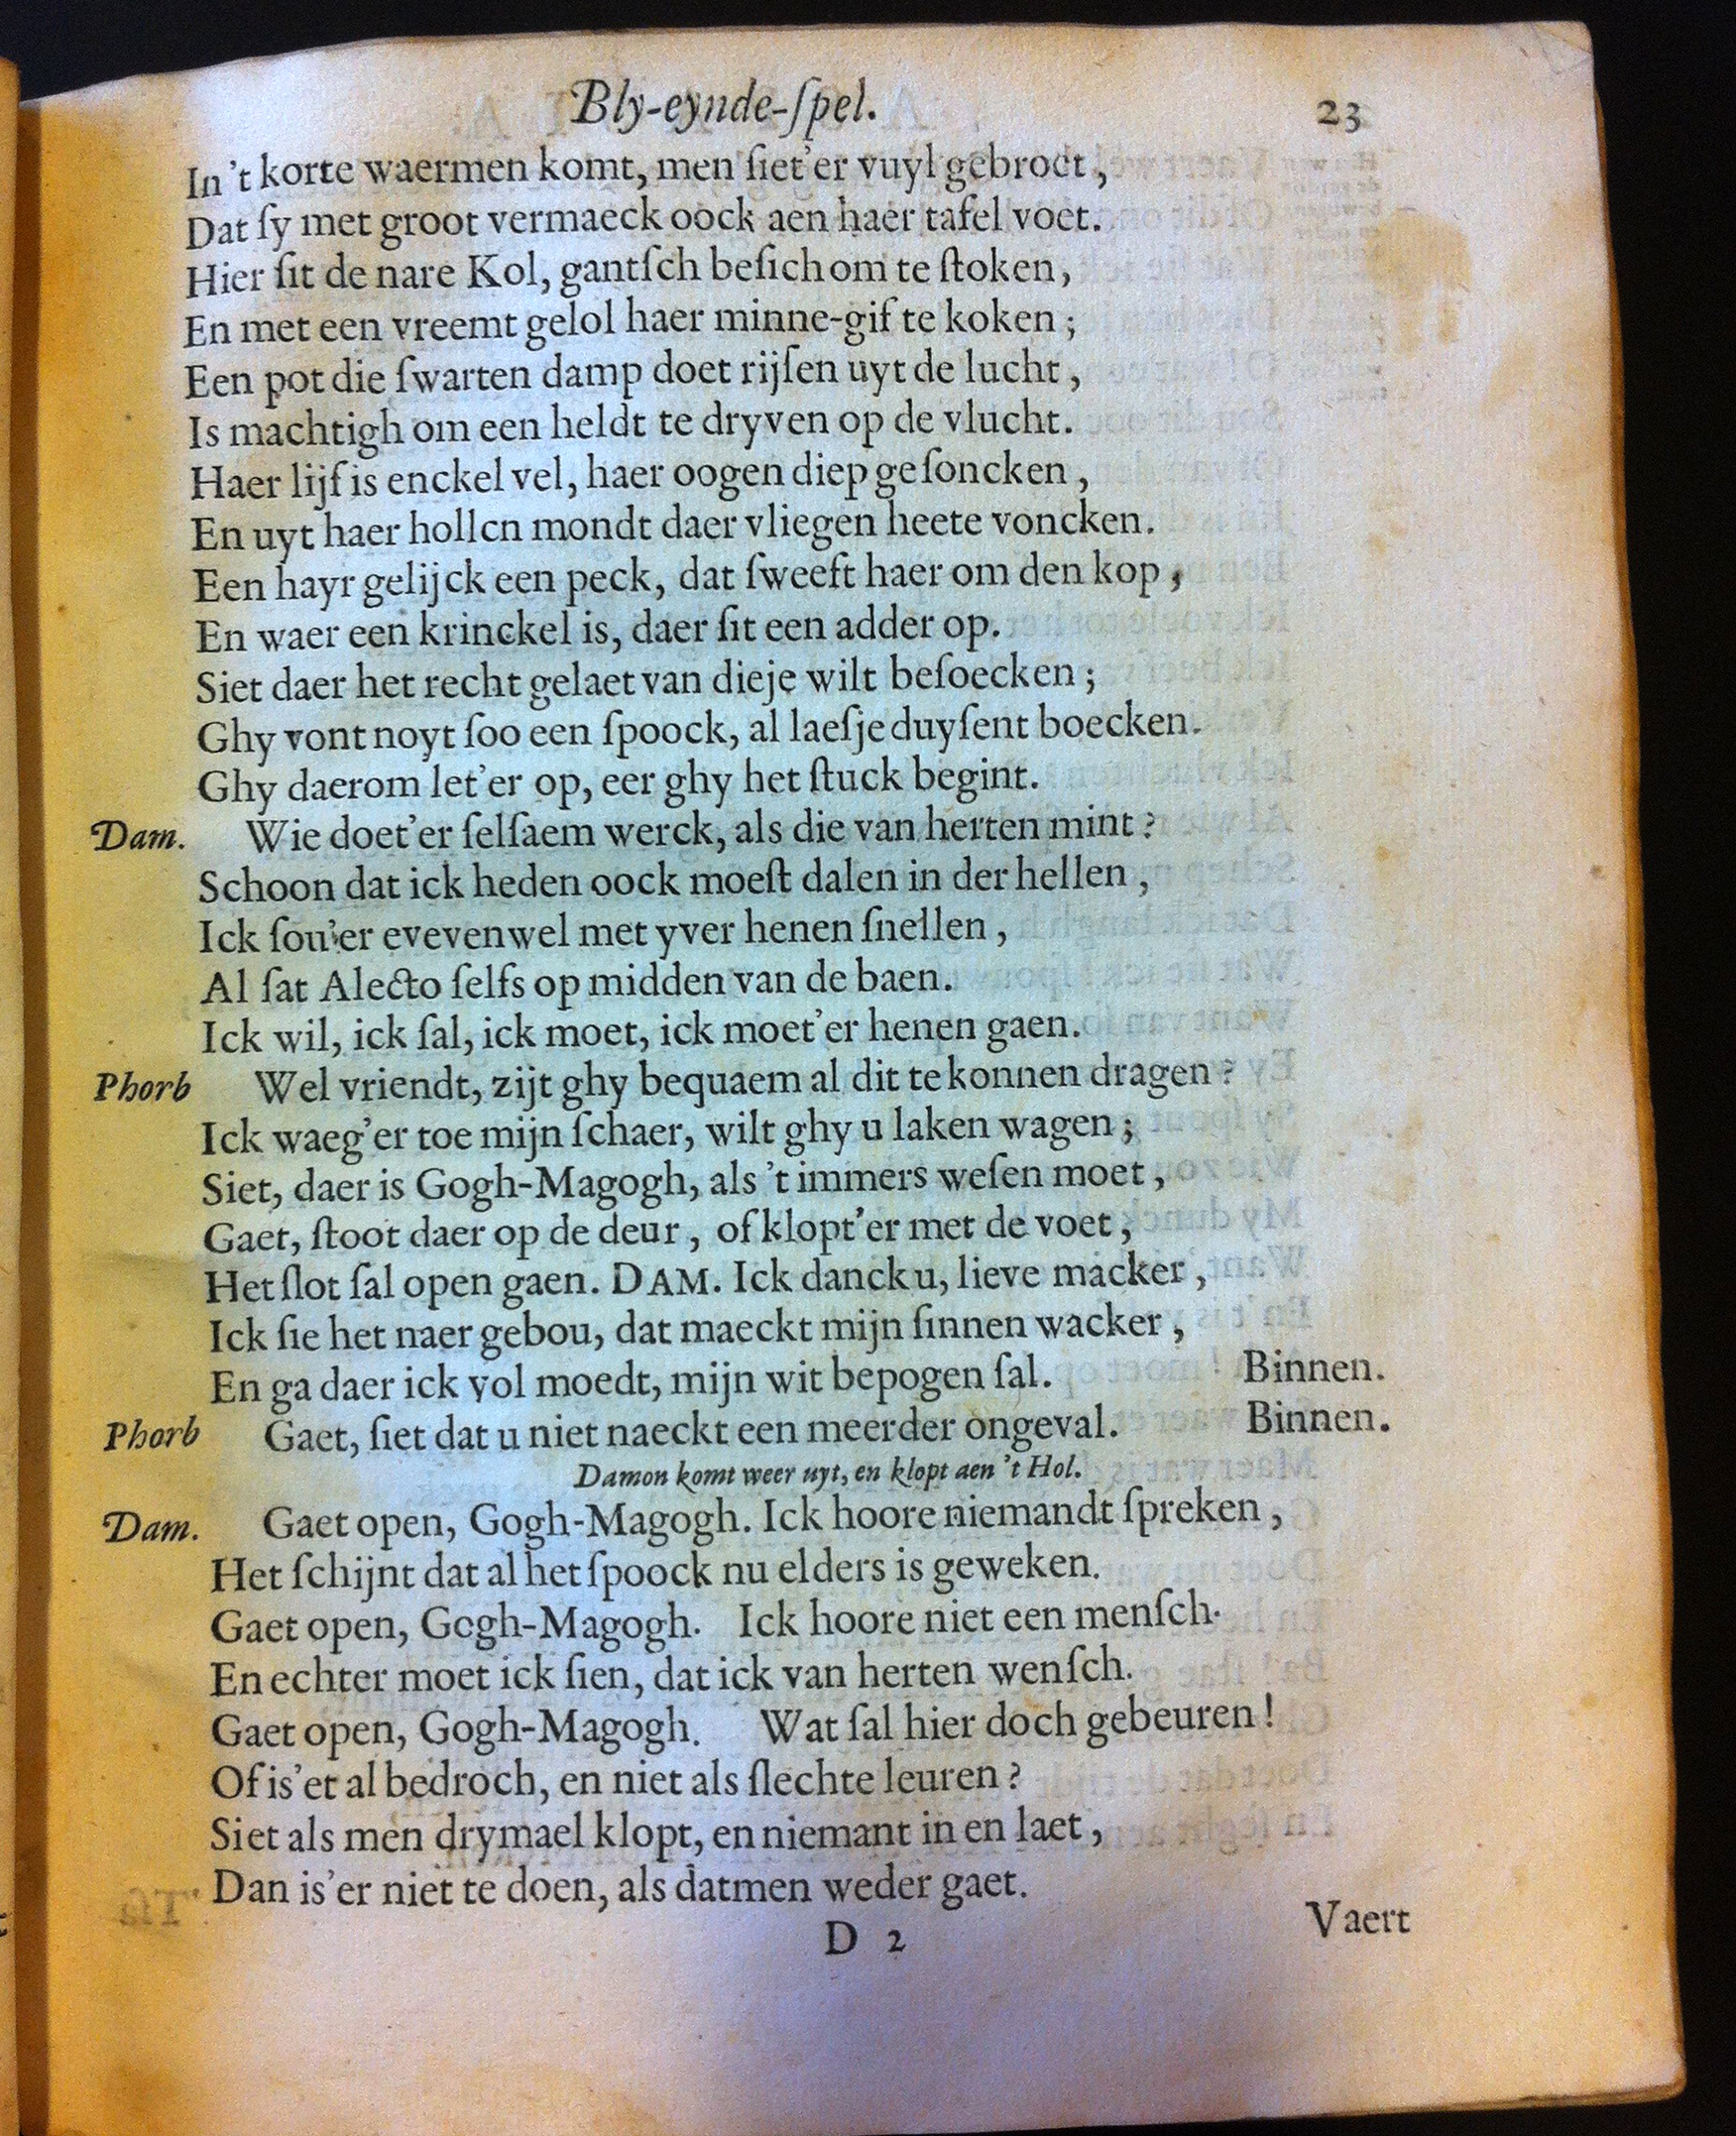 Bly-eynde-ſpel. 23
In 't korte waermen komt, men ſiet'er vuyl gebroet,
Dat ſy met groot vermaeck oock aen haer tafel voet.
Hier ſit de nare Kol, gantſch beſich om te ſtoken,
En met een vreemt gelol haer minne-gif te koken;
Een pot die ſwarten damp doet rijſen uyt de lucht,
Is machtigh om een heldt te dryven op de vlucht.
Haer lijf is enckel vel, haer oogen diep geſoncken,
En uyt haer hollen mondt daer vliegen heete voncken.
Een hayr gelijck een peck, dat ſweeft haer om den kop,
En waer een krinckel is, daer ſit een adder op.
Siet daer het recht gelaet van dieje wilt beſoecken;
Ghy vont noyt ſoo een ſpoock, al laeſje duyſent boecken.
Ghy daerom let'er op, eer ghy het ſtuck begint.
Dam. Wie doet'er ſelſaem werck, als die van herten mint?
Schoon dat ick heden oock moeſt dalen in der hellen,
Ick ſou'er evevenwel met yver henen ſnellen,
Al ſat Alecto ſelfs op midden van de baen.
Ick wil, ick ſal, ick moet, ick moet'er henen gaen.
Phorb Wel vriendt, zijt ghy bequaem al dit te konnen dragen?
Ick waeg'er toe mijn ſchaer, wilt ghy u laken wagen;
Siet, daer is Gogh-Magogh, als 't immers weſen moet,
Gaet, ſtoot daer op de deur, of klopt'er met de voet,
Het ſlot ſal open gaen. DAM. Ick danck u, lieve macker,
Ick ſie het naer gebou, dat maeckt mijn ſinnen wacker,
En ga daer ick vol moedt, mijn wit bepogen ſal. Binnen.
Phorb Gaet, ſiet dat u niet naeckt een meerder ongeval. Binnen.
Damon komt weer uyt, en klopt aen 't Hol.
Dam. Gaet open, Gogh-Magogh. Ick hoore niemandt ſpreken,
Het ſchijnt dat al het ſpoock nu elders is geweken.
Gaet open, Gogh-Magogh. Ick hoore niet een menſch.
En echter moet ick ſien, dat ick van herten wenſch.
Gaet open, Gogh-Magogh. Wat ſal hier doch gebeuren!
Of is'et al bedroch, en niet als ſlechte leuren?
Siet als men drymael klopt, en niemant in en laet,
Dan is'er niet te doen, als datmen weder gaet.
D 2 Vaert